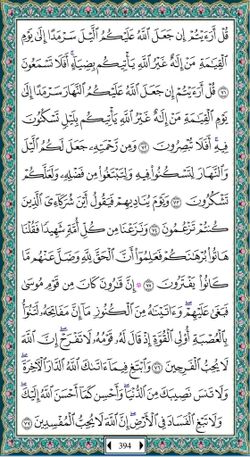 قُلْ أَرَءَيْتُمْ إِن جَعَلَ ٱللَّهُ عَلَيْكُمُ ٱلَّيْلَ سَرْمَدًا إِلَىٰ يَوْمِ
ٱلْقِيَٰمَةِ مَنْ إِلَٰهٌ غَيْرُ ٱللَّهِ يَأْتِيكُم بِضِيَآءٍ ۖ أَفَلَا تَسْمَعُونَ
٧١ قُلْ أَرَءَيْتُمْ إِن جَعَلَ ٱللَّهُ عَلَيْكُمُ ٱلنَّهَارَ سَرْمَدًا إِلَىٰ
يَوْمِ ٱلْقِيَٰمَةِ مَنْ إِلَٰهٌ غَيْرُ ٱللَّهِ يَأْتِيكُم بِلَيْلٍ تَسْكُنُونَ
فِيهِ ۖ أَفَلَا تُبْصِرُونَ ٧٢ وَمِن رَّحْمَتِهِۦ جَعَلَ لَكُمُ ٱلَّيْلَ
وَٱلنَّهَارَ لِتَسْكُنُوا۟ فِيهِ وَلِتَبْتَغُوا۟ مِن فَضْلِهِۦ وَلَعَلَّكُمْ
تَشْكُرُونَ ٧٣ وَيَوْمَ يُنَادِيهِمْ فَيَقُولُ أَيْنَ شُرَكَآءِىَ ٱلَّذِينَ
كُنتُمْ تَزْعُمُونَ ٧٤ وَنَزَعْنَا مِن كُلِّ أُمَّةٍ شَهِيدًا فَقُلْنَا
هَاتُوا۟ بُرْهَٰنَكُمْ فَعَلِمُوٓا۟ أَنَّ ٱلْحَقَّ لِلَّهِ وَضَلَّ عَنْهُم مَّا
كَانُوا۟ يَفْتَرُونَ ٧٥ ۞ إِنَّ قَٰرُونَ كَانَ مِن قَوْمِ مُوسَىٰ
فَبَغَىٰ عَلَيْهِمْ ۖ وَءَاتَيْنَٰهُ مِنَ ٱلْكُنُوزِ مَآ إِنَّ مَفَاتِحَهُۥ لَتَنُوٓأُ
بِٱلْعُصْبَةِ أُو۟لِى ٱلْقُوَّةِ إِذْ قَالَ لَهُۥ قَوْمُهُۥ لَا تَفْرَحْ ۖ إِنَّ ٱللَّهَ
لَا يُحِبُّ ٱلْفَرِحِينَ ٧٦ وَٱبْتَغِ فِيمَآ ءَاتَىٰكَ ٱللَّهُ ٱلدَّارَ ٱلْءَاخِرَةَ ۖ
وَلَا تَنسَ نَصِيبَكَ مِنَ ٱلدُّنْيَا ۖ وَأَحْسِن كَمَآ أَحْسَنَ ٱللَّهُ إِلَيْكَ ۖ
وَلَا تَبْغِ ٱلْفَسَادَ فِى ٱلْأَرْضِ ۖ إِنَّ ٱللَّهَ لَا يُحِبُّ ٱلْمُفْسِدِينَ ٧٧
394